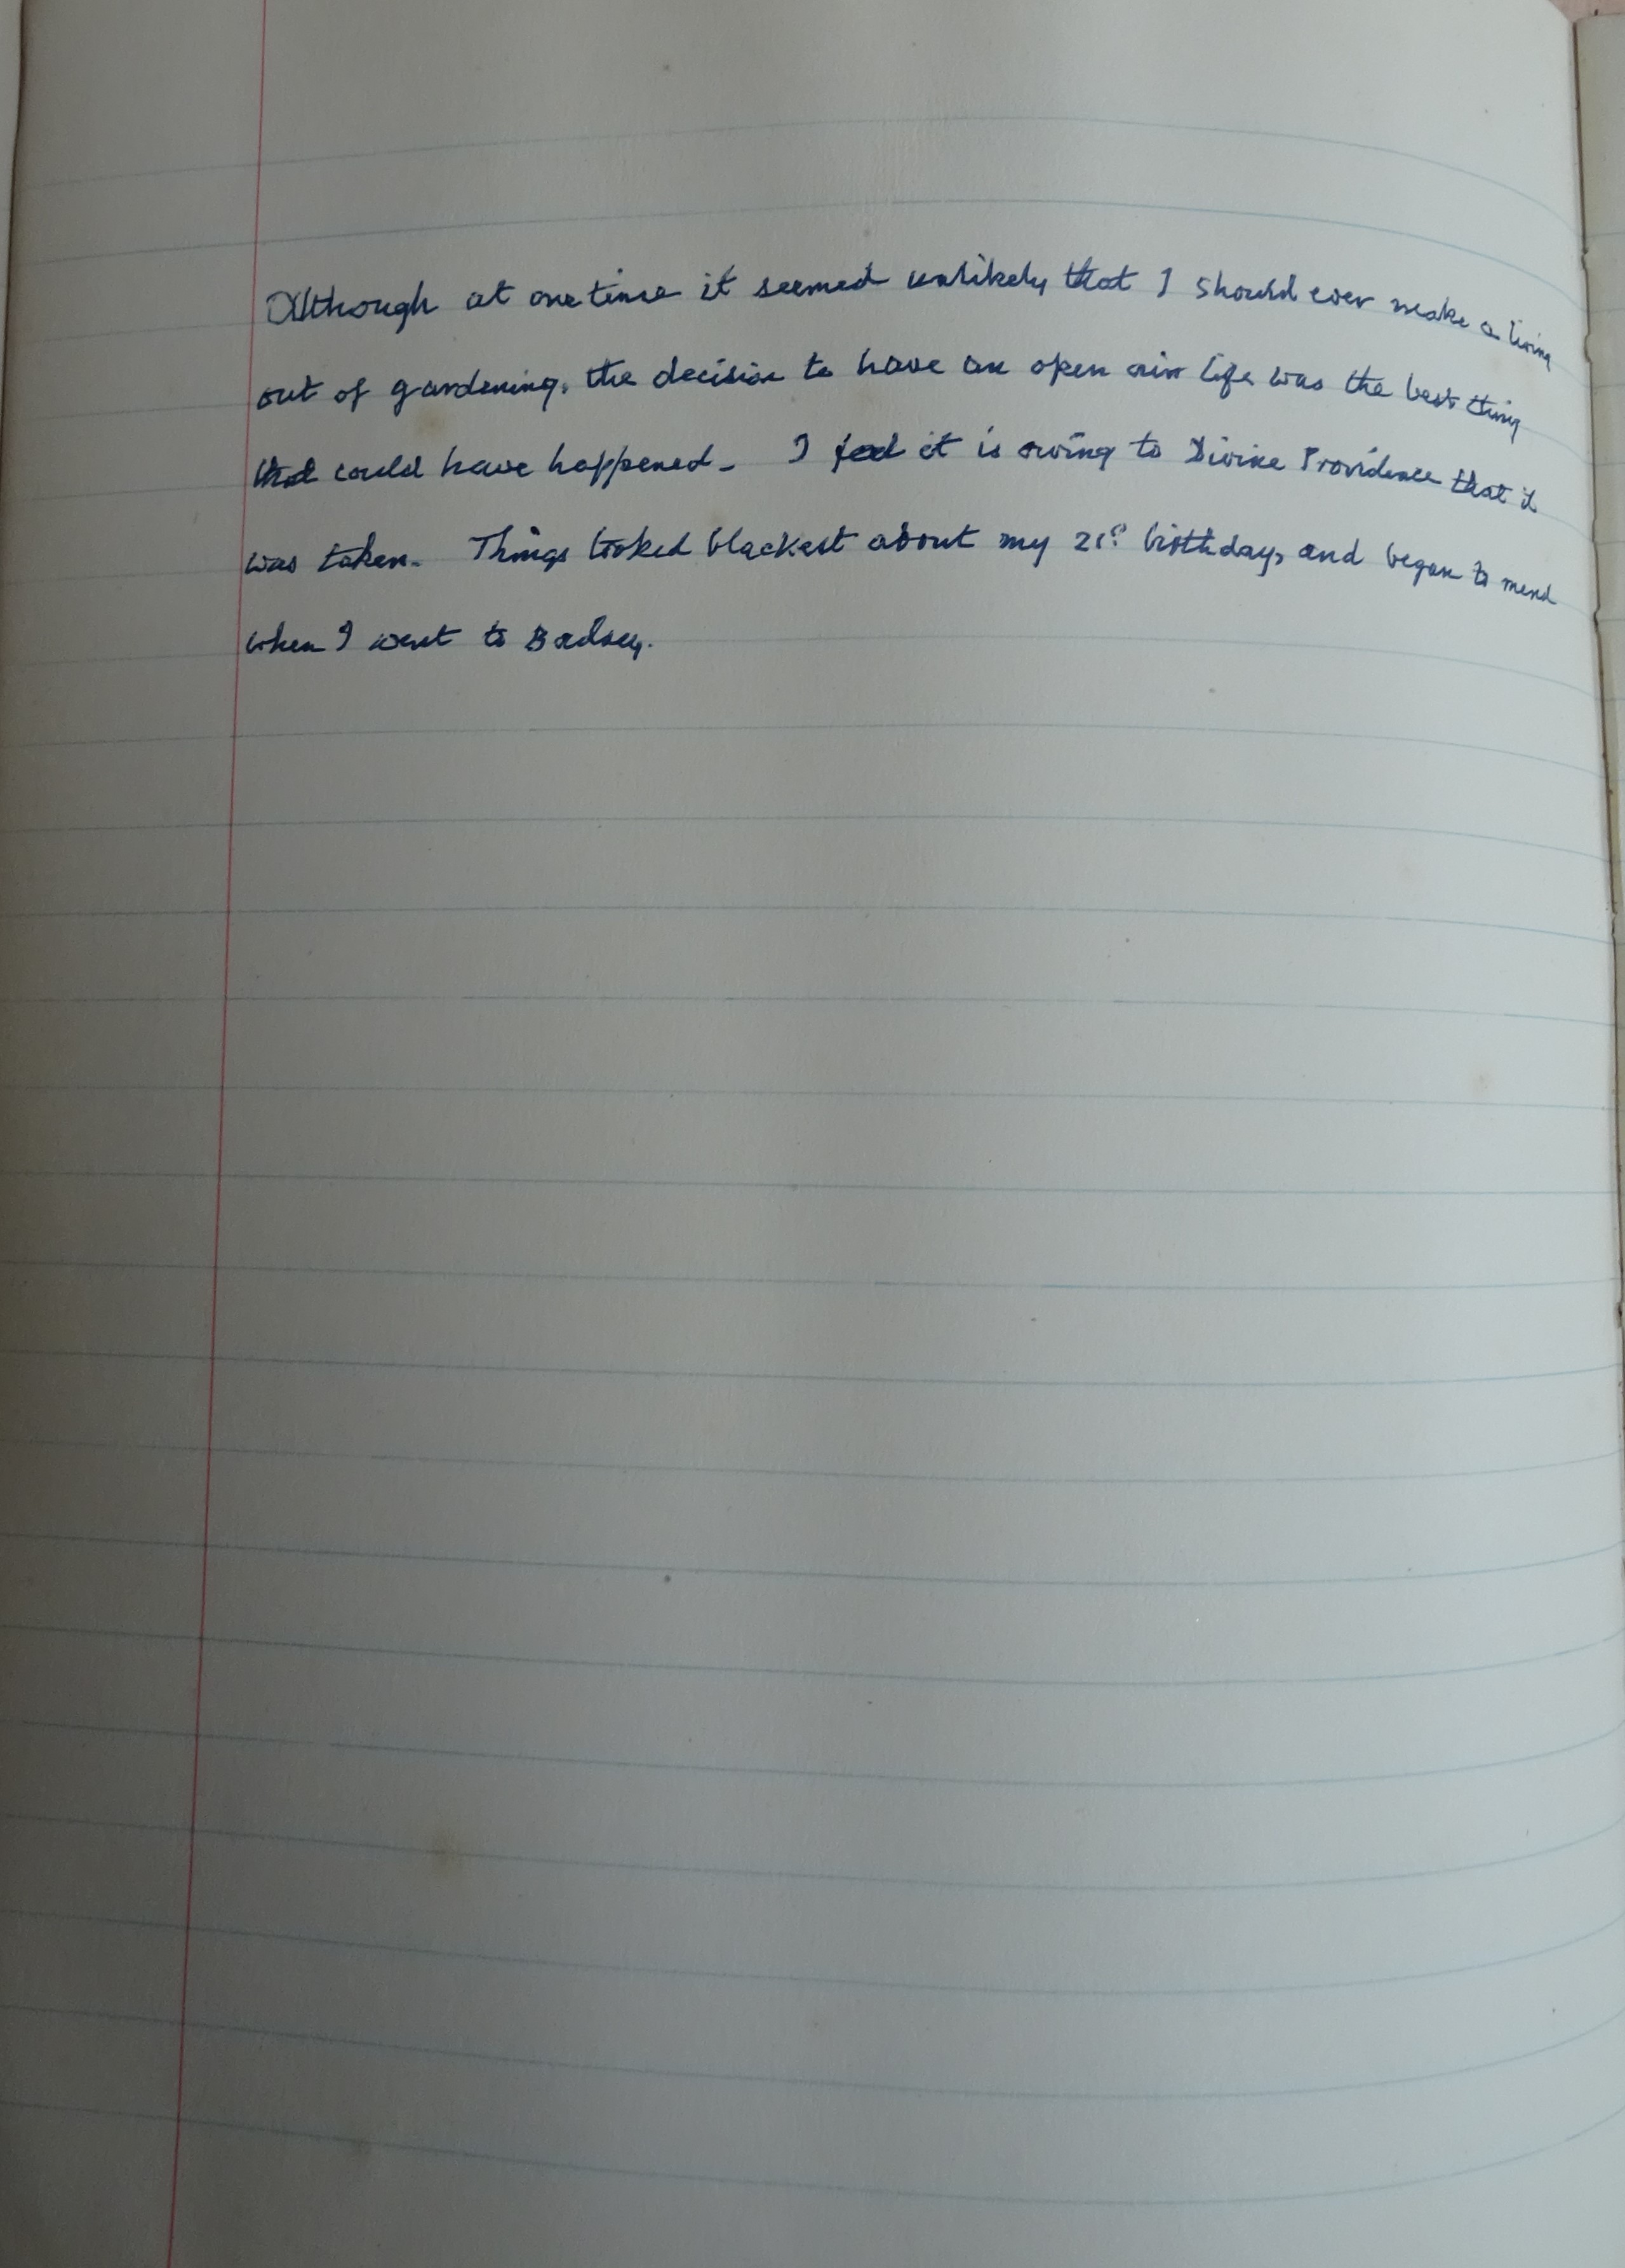 Although at one time it seemed unlikely that I should ever make a living
out of gardening, the decision to have an open air life was the best thing
that could have happened. I feel it is owing to Divine Providence that it
was taken. Things looked blackest about my 21st birthday, and began to mend
when I went to Badsey.